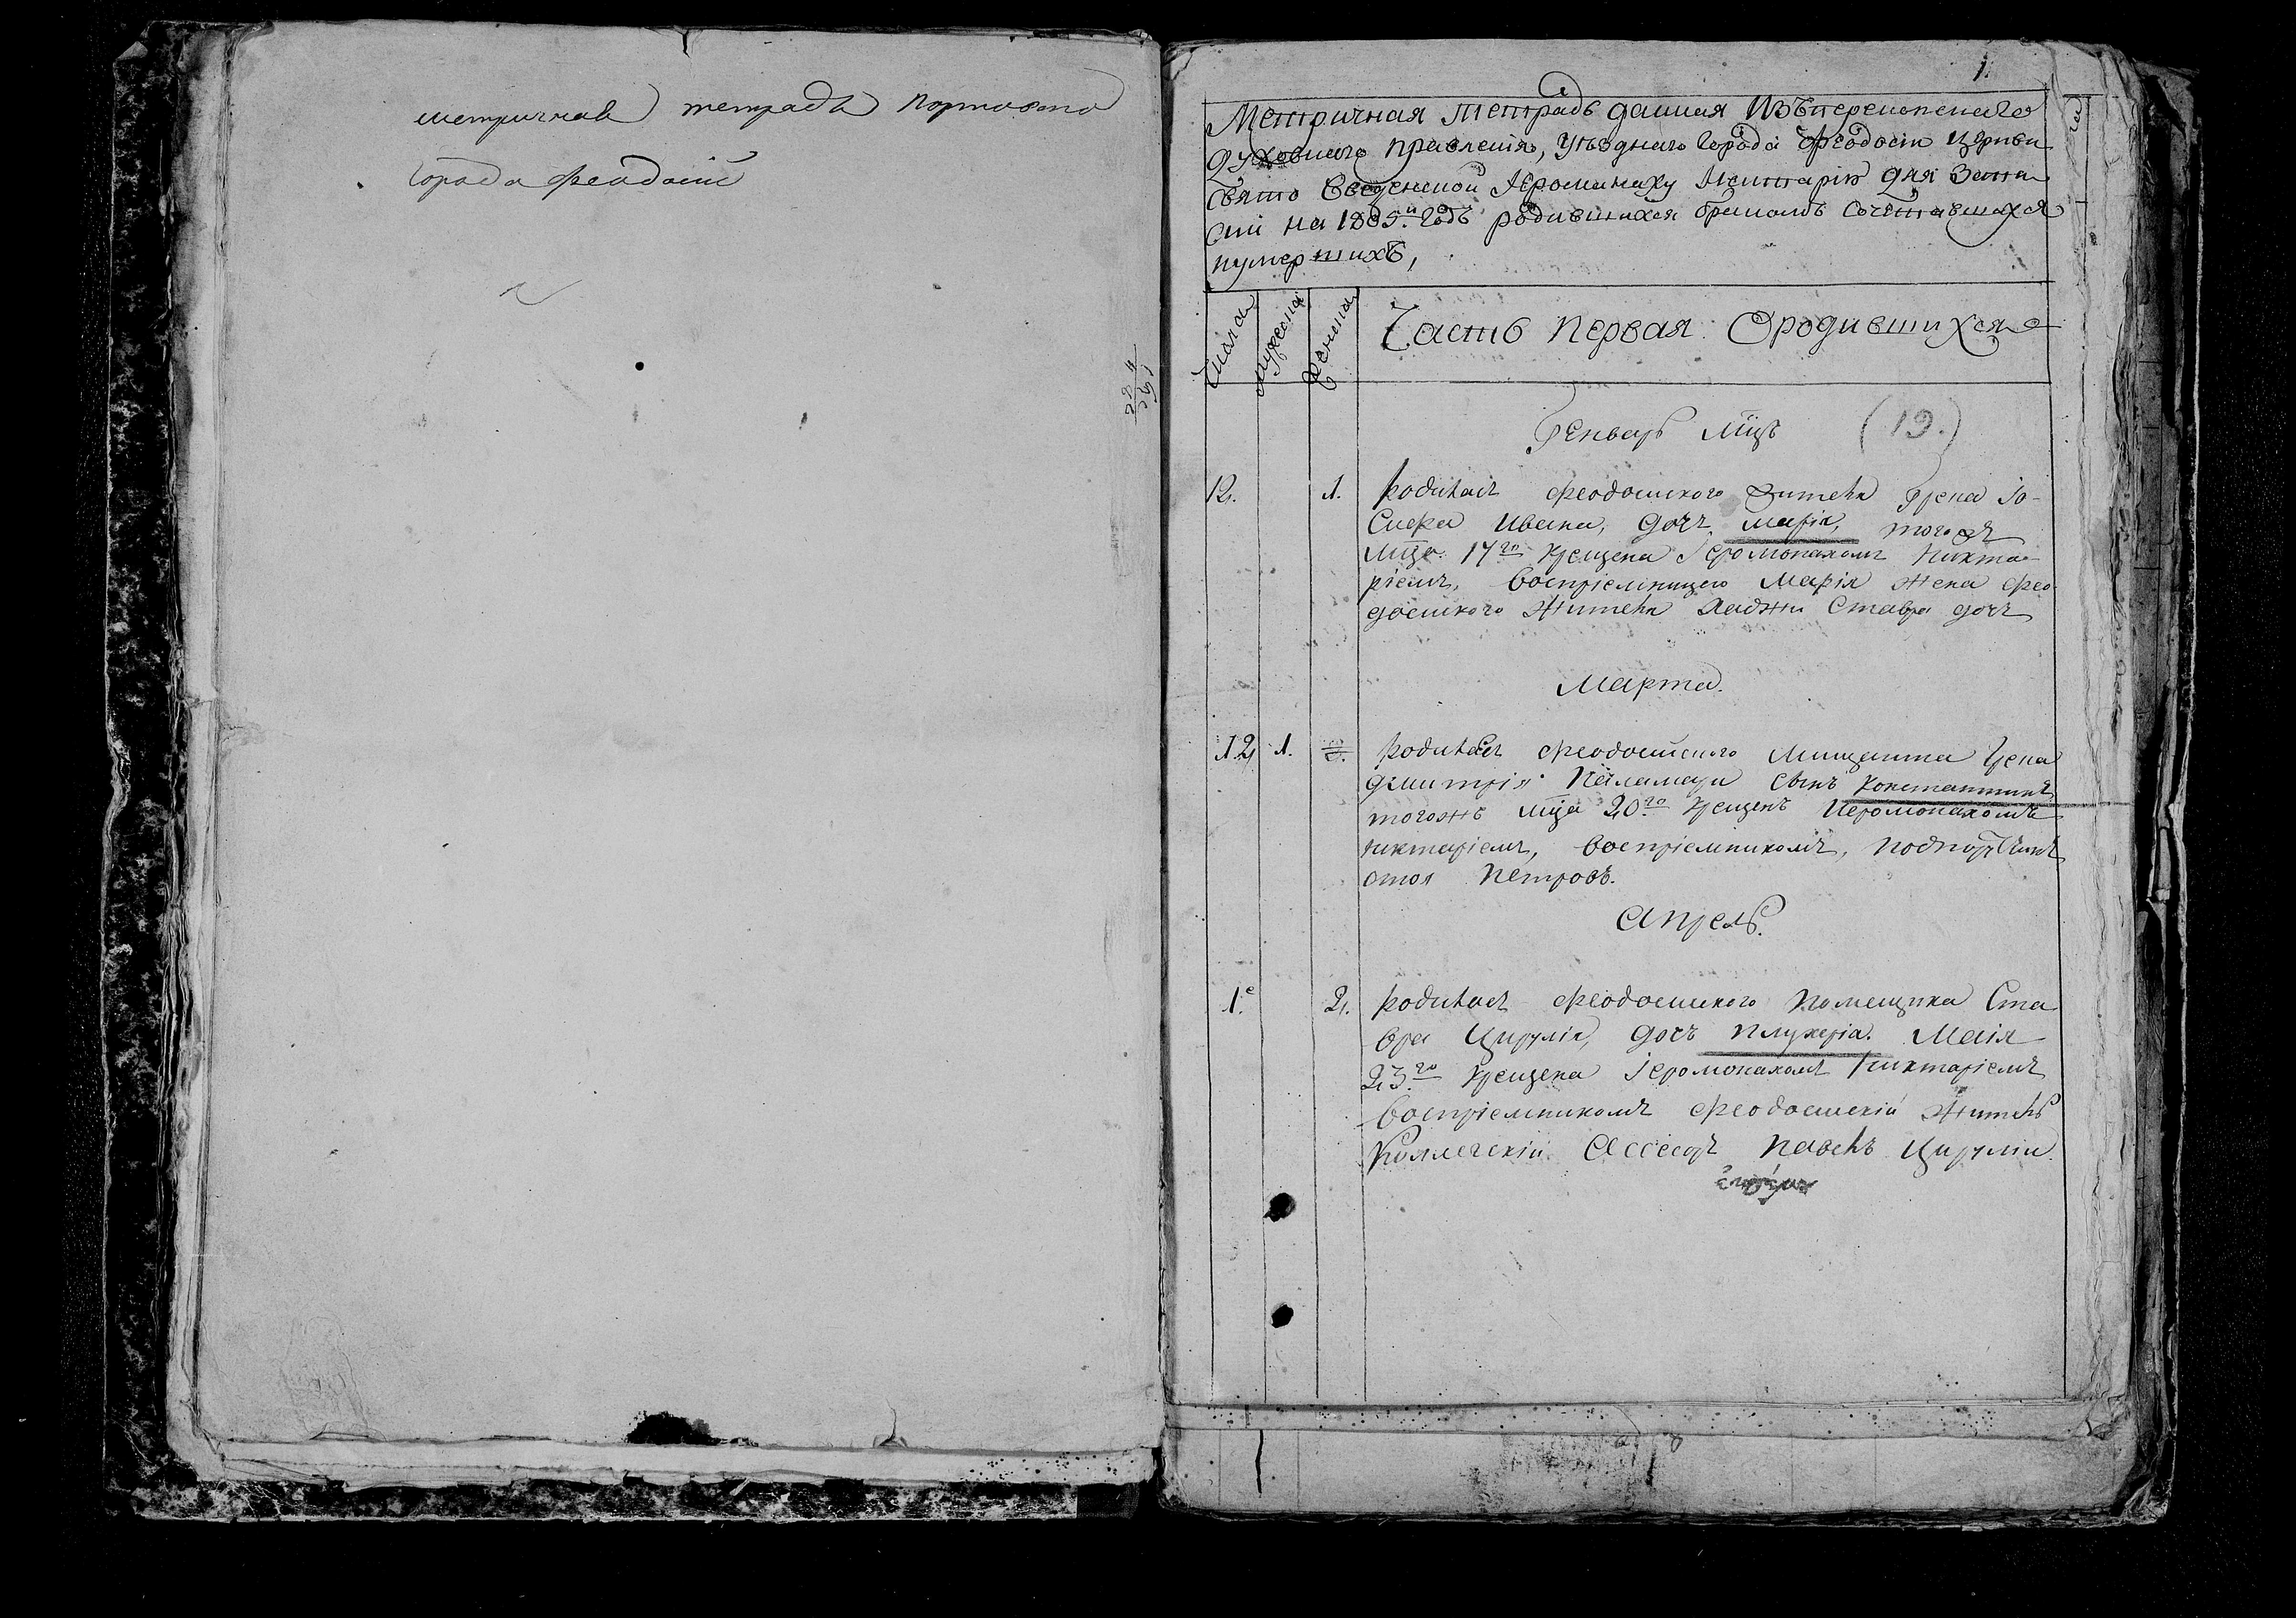 метричная тетрадь портового
города феодосіи
1.
Метричная тетрадь данная Изъ перекопскаго
духовнаго правленія, уѣзднаго города Феодосіи церкви
Свято Введенской Иеромонаху Нектарію для записи
на 1805й годъ родившихся бракомъ Сочетавшихся
и умершихъ,
Числа
мужеска
женска
Часть первая Ородившихся
Генварь мцъ (19.)
12. 1. Родилась феодосийского жителя грека Іо-
сифа Ивана, дочь марія, того жъ
мца 17го крещена Іеромонахомъ Никта-
ріемъ, восприемницею Марія жена фео-
досийского жителя Хаджи Ставра дочь
Марта.
12 1. Родился феодосийского мищанина грека
дмитрія сынъ константинъ
тогожъ мца 20го крещенъ Иеромонахомъ
никтаріемъ, восприемникомъ, подпорутчикъ
Петровъ.
Апрель.
1е. 2. Родилась феодосийского помещика Ста
вра Цирулія, дочь плухерія. Маія
23го крещена Іеромонахомъ Никтаріемъ
восприемникомъ феодосийскій житель
Коллегскій Ассесоръ павелъ Цирулій